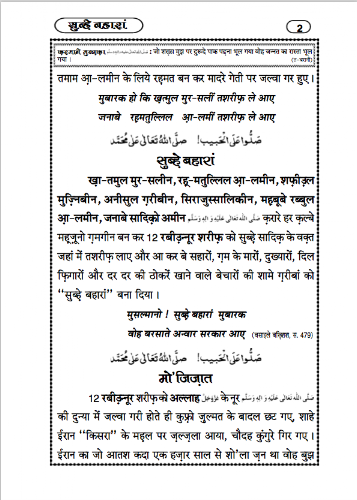 सुब्हे बहारां
2
फ़रमाने मुस्तफ़ा صلى الله تعالى عليه واله وسلم : जो शख़्स मुझ पर दुरूदे पाक पढ़ना भूल गया वोह जन्नत का रास्ता भूल
गया ।
तमाम आ़-लमीन के लिये रह़मत बन कर मादरे गेती पर जल्वा गर हुए ।
मुबारक हो कि ख़त्मुल मुर-सलीं तशरीफ़ ले आए
जनाबे रह़मतुल्लिल आ़-लमीं तशरीफ़ ले आए
صَلُّوا عَلَى الْحَبِيب! صلَّى اللهُ تعالى على محمَّد
सुब्हे बहारां
ख़ा-तमुल मुर-सलीन, रह़्-मतुल्लिल आ़-लमीन, शफ़ीउ़ल
मुज़्निबीन, अनीसुल ग़रीबीन, सिराजुस्सालिकीन, मह़बूबे रब्बुल
आ़-लमीन, जनाबे सादिक़ो अमीन صَلَّى اللهُ تَعَالٰى عَلَيْهِ وَاٰلِهٖ وَسَلَّم क़रारे हर क़ल्बे
मह़्ज़ूनो ग़मगीन बन कर 12 रबीउ़न्नूर शरीफ़ को सुब्हे सादिक़ के वक़्त
जहां में तशरीफ़ लाए और आ कर बे सहारों, ग़म के मारों, दुख्यारों, दिल
फ़िगारों और दर दर की ठोकरें खाने वाले बेचारों की शामे ग़रीबां को
"सुब्हे बहारां" बना दिया ।
मुसल्मानो ! सुब्हे बहारां मुबारक
वोह बरसाते अन्वार सरकार आए (वसाइले बख़्शिश, स. 479)
صَلُّوا عَلَى الْحَبِيب! صلَّى اللهُ تعالى على محمَّد
मो'जिज़ात
12 रबीउ़न्नूर शरीफ़ को अल्लाह عَزَّوَجَلَّ के नूर صَلَّى اللهُ تَعَالٰى عَلَيْهِ وَاٰلِهٖ وَسَلَّم
की दुन्या में जल्वा गरी होते ही कुफ़्रो ज़ुल्मत के बादल छट गए, शाहे
ईरान "किसरा" के मह़ल पर ज़ल्ज़ला आया, चौदह कुंगुरे गिर गए ।
ईरान का जो आतश कदा एक हज़ार साल से शो'ला ज़न था वोह बुझ